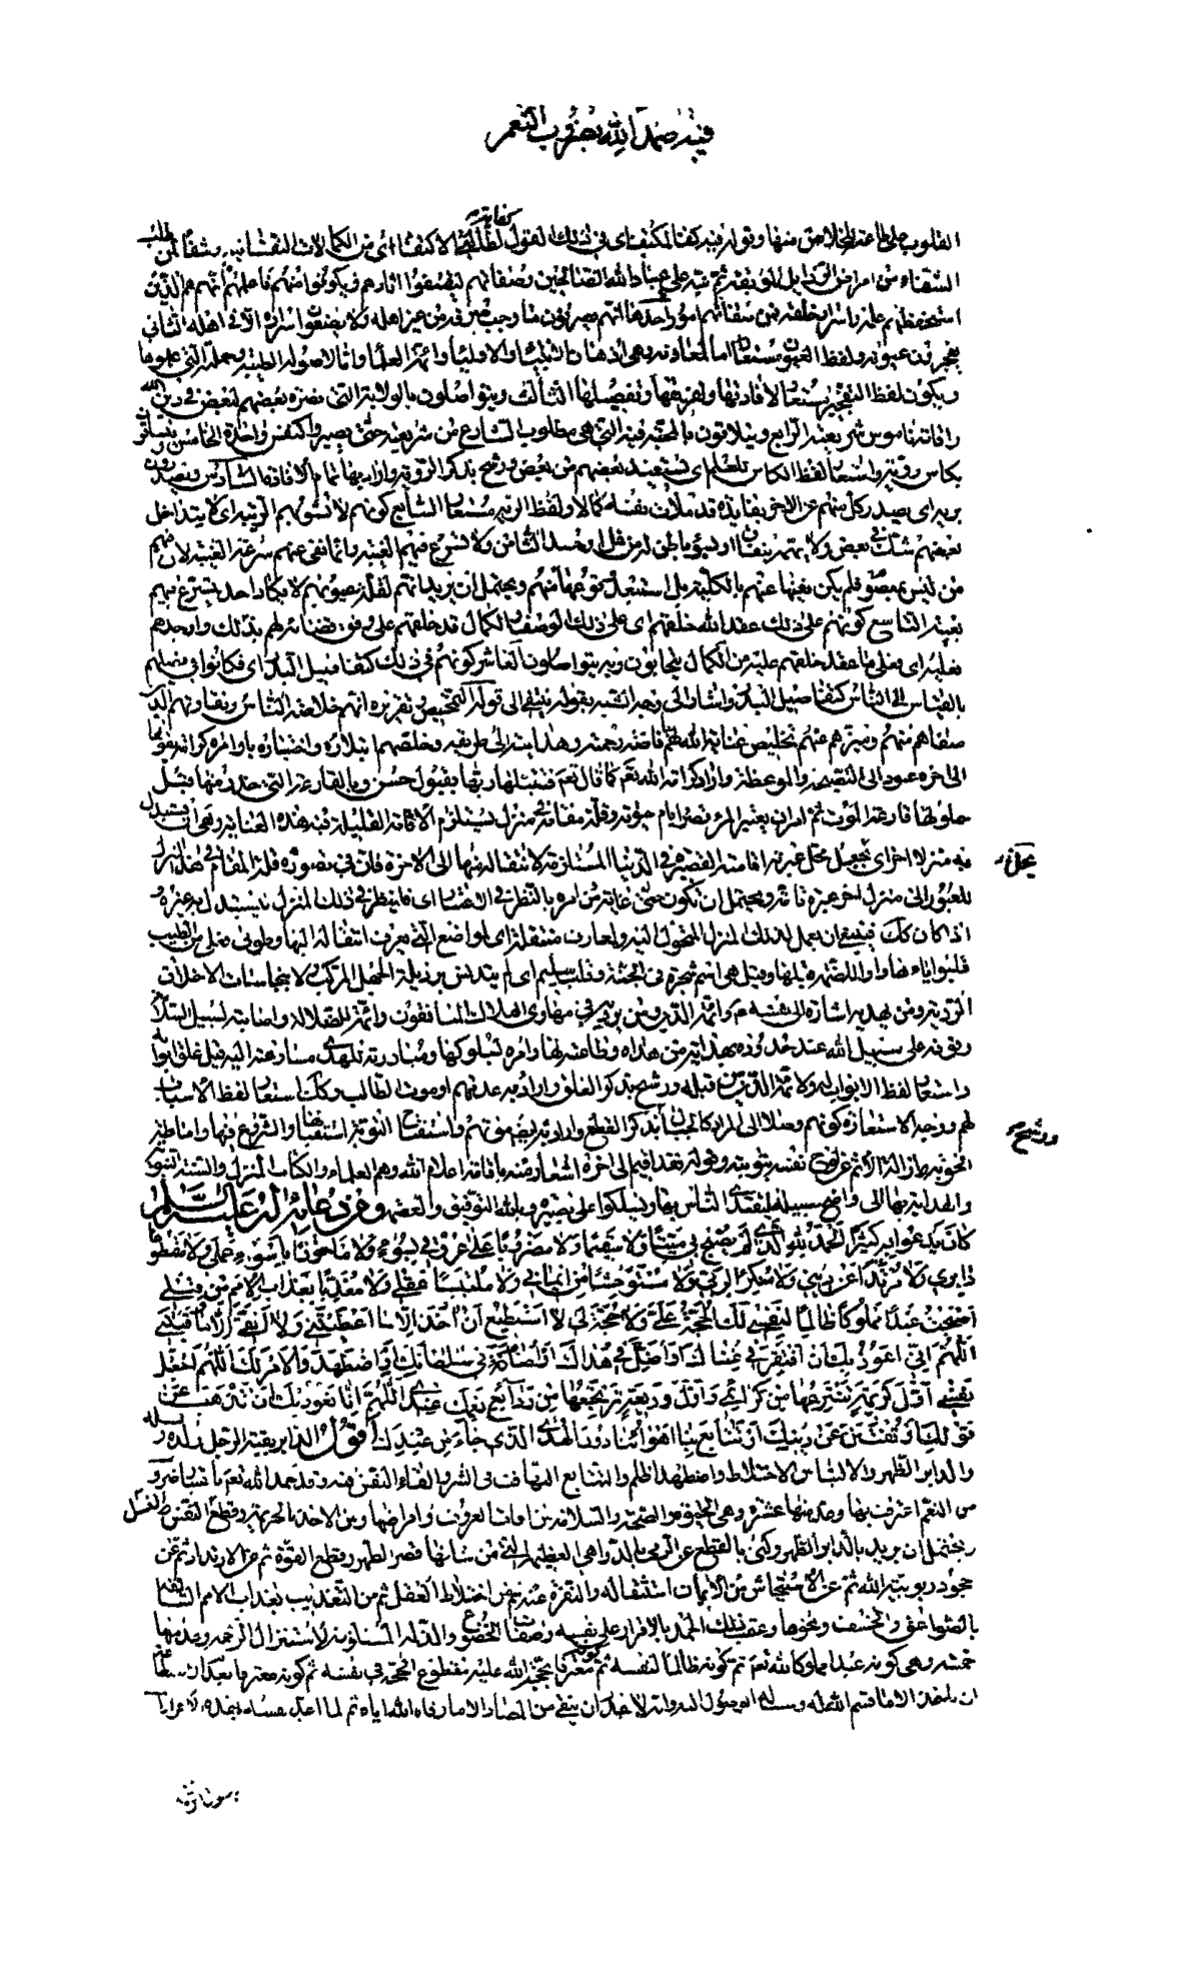 فيه حمد الله بضروب النعم
كفايته
القلوب على طاعته للخلاص منها وقوله فيه كفاء لمكتف اى فى ذلك القول لطالب الاكتفاء اى من الكمالات النفسانية وشفاء لمن طلب
الشفاء من امراض الرذايل الموبقة ثم نبه على عباد الله الصالحين وصفاتهم ليقتفوا اثارهم ويكونوا منهم فاعلمهم انهم هم الذين
استحفظهم علمه واسرار خلقه فمن صفاتهم امور احدها انهم يصونون ما وجب صونه من غير اهله ولا يضيعون اسراره الا فى اهله الثانى
يفجرون عيونه ولفظ العيون مستعار
ويكون لفظ التفجير مستعارا لافادتها وتعريفها وتفصيلها الثالث ويتواصلون بالولاية التى نصرة بعضهم لبعض فى دين الله
واقامة ناموس شريعته الرابع ويتلاقون بالمحبة فيه التى هى مطلوب الشارع من شريعته حتى يصيروا كنفس واحدة الخامس يتساقون
بكاس روية واستعار لفظ الكاس للعلم اى يستفيد بعضهم من بعض ورشح بذكر الروية واراد بها تمام الافادة السادس ويصدرون
برية اى يصدر كل منهم عن الاخر بفايدة قد ملات نفسه كمالا ولفظ الرية مستعار السابع كونهم لا تشوبهم الريبة اى لا يتداخل
بعضهم شك فى بعض ولا يتهمه بنفاق او بسوء باطن له من غل او حسد الثامن ولا تسرع فيهم الغيبة وانما نفى عنهم سرعة الغيبة لان فيهم
من ليس بمعصوم فلم يكن نفيها عنهم بالكلية بل استبعد وقوعها منهم ويحتمل ان يريد انهم لقلة عيوبهم لا يكاد احد يتسرع فيهم
بغيبة التاسع كونهم على ذلك عقد الله خلقهم اى على ذلك الوصف والكمال قد خلقهم على وفق قضائه لهم بذلك واوجدهم
فعليه اى فعلى ما عقد خلقهم عليه من الكمال يتحابون وبه يتواصلون العاشر كونهم فى ذلك كتفاضل البذر اى فكانوا فى فضلهم
بالقياس الى الناس كتفاضل البذر واشار الى وجه الشبه بقوله ينتقى الى قوله التمحيص وتقريره انهم خلاصة الناس ونقاوتهم الذين
صفاهم منهم وميزهم عنهم تخليص عناية الله لهم بافاضة رحمته وهدايته الى طريقه وخلصهم ابتلاؤه واختباره باوامره
الى اخره عود الى النصيحة والموعظة واراد كرامة الله نعم كما قال نعم فتقبلها ربها بقبول حسن وبالقارعة التى حذر منها قبل
حلولها قارعة الموت ثم امر ان يعتبر المرء قصر ايام حيوته وقلة مقامه فى منزل يستلزم الاقامة القليلة فيه هذه الغاية وهى ان يستبدل
به منزلا اخر اى يجعل محل عبرته اقامته القصيرة فى الدنيا المستلزمة لانتقاله منها الى الاخرة فان فى تصوره قلة المقام فى هذا المنزل
للعبور الى منزل اخر عبرة تامة ويحتمل ان تكون حتى غاية من امره بالنظر فى الاعتبار اى فلينظر فى ذلك المنزل ليستبدل به غيره
اذا كان كذلك فينبغى ان يعمل لذلك المنزل المتحول اليه ولمعارف منتقله اى لمواضع التى يعرف انتقاله اليها وطوبى فعلى من الطيب
قلبوا ياءه واوا للضمة قبلها وقيل هى اسم شجرة فى الجنة وقلب سليم اى لم يتدنس برذيلة الجهل المركب ولا بنجاسات الاخلاق
الردية ومن يهديه اشارة الى نفسه وائمة الدين ومن يرديه فى مهاوى الهلاك المنافقون وائمة الضلالة واصابة لسبيل السلامة
وقوفه على سبيل الله عند حدوده بهداية من هداه وطاعته لهاد امره بسلوكها ومبادرته للهدى مسارعته اليه قبل غلق ابوابه
واستعار لفظ الابواب له ولائمة الدين من قبله ورشح بذكر الغلق واراد به عدمهم او موت الطالب وكذلك استعار لفظ الاسباب
لهم ووجه الاستعارة كونهم وصلا الى المراد كالحبال بذكر القطع واراد به ايضا موتهم واستفتاح التوبة استقبالها والشروع فيها واماطته
الحوبة وازالة الاثم عن لوح نفسه بتوبته وقوله فقد اقيم الى اخره اشعار منه باقامة اعلام الله وهم العلماء والكتاب المنزل والسنة النبوية
والهداية بها الى واضح سبيله ليقتدى الناس بها ويسلكوا على بصيرة وبالله التوفيق والعصمة ومن دعائه له عليه السلام
كان يدعو به كثيرا الحمد لله الذى لم يصبح بى ميتا ولا سقيما ولا مضروبا على عروقى بسوء ولا ماخوذا باسوء عملى ولا مقطوعا
دابرى ولا مرتدا عن دينى ولا منكرا لربى ولا مستوحشا من ايمانى ولا ملتبسا عقلى ولا معذبا بعذاب الامم من قبلى
اصبحت عبدا مملوكا ظالما لنفسى لك الحجة على ولا حجة لى لا استطيع ان اخذ الا ما اعطيتنى ولا اتقى الا ما وقيتنى
اللهم انى اعوذ بك ان افتقر فى غناك او اضل فى هداك او اضام فى سلطانك او اضطهد والامر لك اللهم اجعل
نفسى اول كريمة تنتزعها من كرائمى واول وديعة ترتجعها من ودائع نعمك عندى اللهم انا نعوذ بك ان نذهب عن
قولك او نفتتن عن دينك او تتابع بنا اهواؤنا دون الهدى الذى جاء من عندك اقول الدابر بقية الرجل نسله وولده
والدابر الظهر والالتباس الاختلاط واضطهد اظلم والتتابع التهافت فى الشر والقاء النفس فيه وقد حمد الله نعم باعتبار ضروب
من النعم اعترف بها وعد منها عشرة وهى الحيوة والصحة والسلامة من افات العروق وامراضها ومن الاخذ بالجريمة وقطع النفس والنسل
ويحتمل ان يريد بالدابر الظهر وكنى بالقطع عن الرمى بالدواهى العظيمة التى من شانها قصر الظهر وقطع القوة ثم من الارتداد ثم عن
جحود ربوبية الله ثم عن الاستيحاش من الايمان استثقاله والنفرة عنه ثم من اختلاط العقل ثم من التعذيب بعذاب الامم السالفة
بالصواعق والخسف ونحوها وعقب ذلك الحمد بالاقرار على نفسه وصفات الخضوع والذلة المستلزمة لاستنزال الرحمة وعد منها
خمسة وهى كونه عبدا مملوكا لله نعم ثم كونه ظالما لنفسه ثم معترفا بحجة الله عليه مقطوع الحجة فى نفسه ثم كونه معترفا بعدم
يحل
ورشح